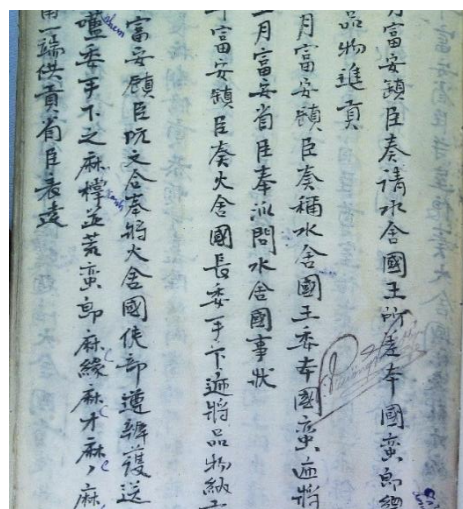 月富安鎮臣奏請水舍國王所差本國蠻郎
品物進貢
月富安鎮臣奏稱水舍國王委本國蠻遞將
二月富安省臣奉派問水舍國事狀
富安鎮臣奏火舍國長委手下遞將品物納
富安鎮臣阮文合奉將火舍國使部遵辦護送
委手下之麻檡並蠻郎麻緣麻才麻麻
一端供貢省臣表達